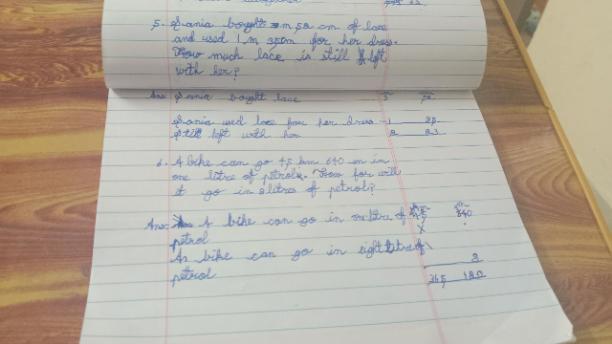 5. Srania bought 3m 50 cm of lace
and used 1 m 35m for her dress.
How much lace is still left
with her?
Ans: Srania bought lace
Srania used lace for her dress - 1
Still left with her
6. A bike can go 45 km 640 m in
one litre of petrol. How for will
it go in 8 litre of petrol?
Ans: A bike can go in one litre of 640
petrol
As bike can go in eight litre of
petrol 365 120